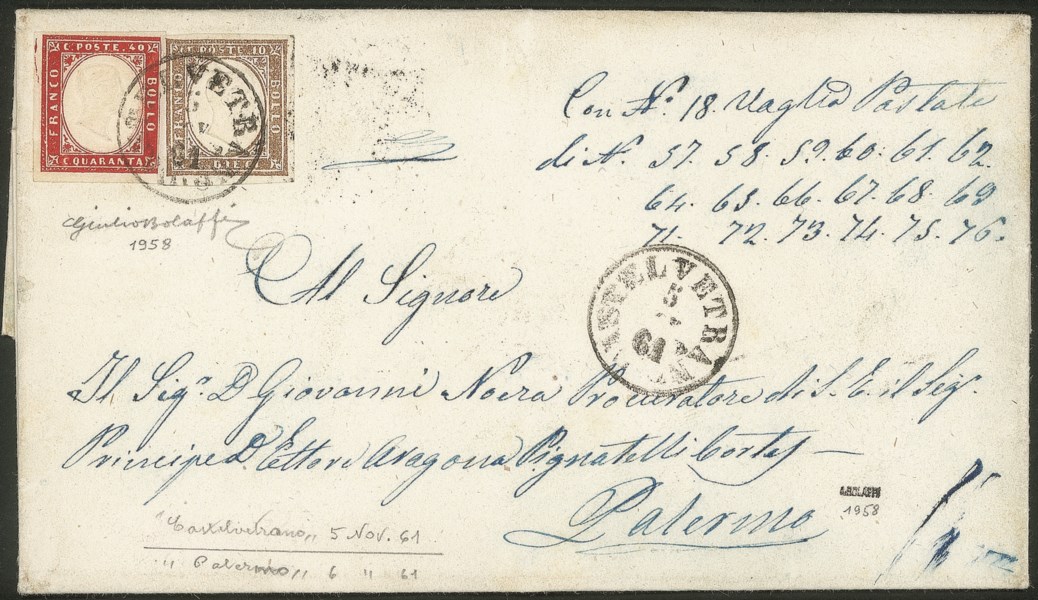 C. POSTE. 40
FRANCO
BOLLO
C. QUARANTA
C. POSTE. 10
BOLLO
Con N.º 18. Vaglia Postale
di N. 57. 58. 59. 60. 61. 62
64. 65. 66. 67. 68. 69
71. 72. 73. 74. 75. 76.
Giulio Bolaffi
1958
Al Signore
CASTELVETRANO
5
61
Il Sig.r D. Giovanni Nocra Procuratore di S. E. il Sig.r
Principe D. Ettore Aragona Pignatelli Cortes —
Palermo
1958
"Castelvetrano„ 5 Nov. 61
„ Palermo„ 6 „ 61